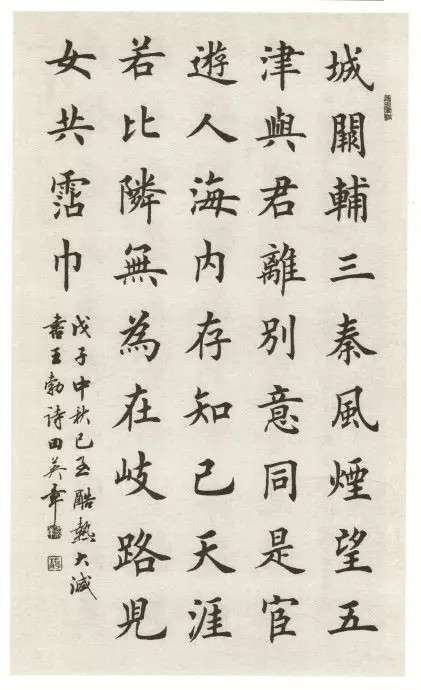 城闕輔三秦風煙望五
津與君離別意同是宦
遊人海内存知己天涯
若比隣無為在岐路兒
女共霑巾
戊子中秋已至酷熱大減
書王勃诗田英章